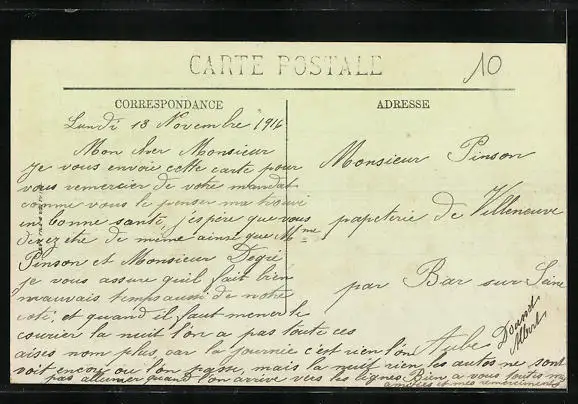 CARTE POSTALE
10
CORRESPONDANCE
ADRESSE
Lundi 13 Novembre 1916
Mon cher Monsieur
Je vous envoie cette carte pour
vous remercier de votre mandat
comme vous le penser ma trouvé
en bonne santé, j'espère que vous
devez etre de même ainsi que Mme
Pinson et Monsieur
je vous assure quil fait bien
mauvais temps aussi de notre
coté, et quand il faut mener le
courier la nuit l'on a pas toute ces
aises nom plus, car la journée c'est rien l'on
voit encore ou l'on passe, mais la nuit rien les autos ne sont
pas allumer quand l'on arrive vers les lignes. Bien a vous toutes mes
amitiés et mes remerciements
Monsieur Pinson
papeterie de Villeneuve
par Bar sur Seine
Aube
Albert